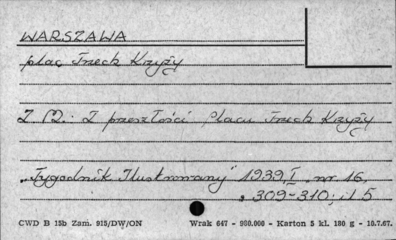 WARSZAWA
plac Trzech Krzyży
Z M.: Z przeszłości Placu Trzech Krzyży
"Tygodnik Ilustrowany" 1939, I nr 16,
s 309-310; il 5
CWD B 15b Zam. 915/DW/ON Wrak 647 - 900.000 - Karton 5 kl. 180 g - 18.7.67.